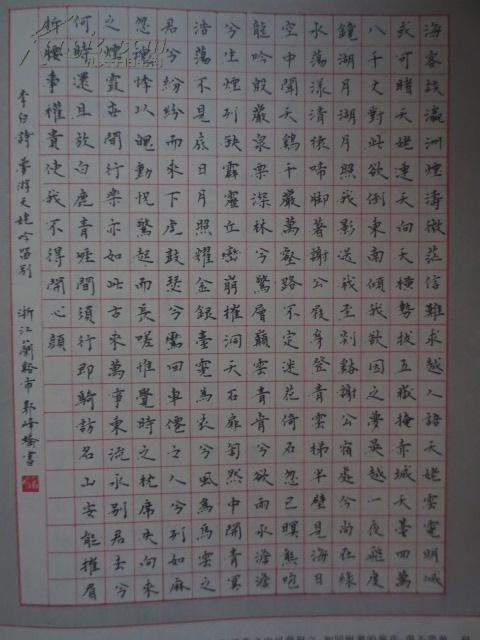 海客談瀛洲煙濤微茫信難求越人語天姥雲霓明滅
或可睹天姥連天向天橫勢拔五嶽掩赤城天臺四萬
八千丈對此欲倒東南傾我欲因之夢吳越一夜飛度
鏡湖月湖月照我影送我至剡谿謝公宿處今尚在綠
水蕩漾清猿啼腳著謝公屐身登青雲梯半壁見海日
空中聞天鷄千巖萬壑路不定迷花倚石忽已暝熊咆
龍吟殷巖泉栗深林兮驚層巔雲青青兮欲雨水澹澹
兮生煙列缺霹靂丘巒崩摧洞天石扉訇然中開青冥
浩蕩不見底日月照耀金銀臺霓為衣兮風為馬雲之
君兮紛紛而來下虎鼓瑟兮鸞回車僊之人兮列如麻
忽魂悸以魄動怳驚起而長嗟惟覺時之枕席失向來
之煙霞世間行樂亦如此古來萬事東流水別君去兮
何時還且放白鹿青崖間須行即騎訪名山安能摧眉
折腰事權貴使我不得開心顏
李白詩 夢游天姥吟留別 浙江蘭谿市 郭峰書